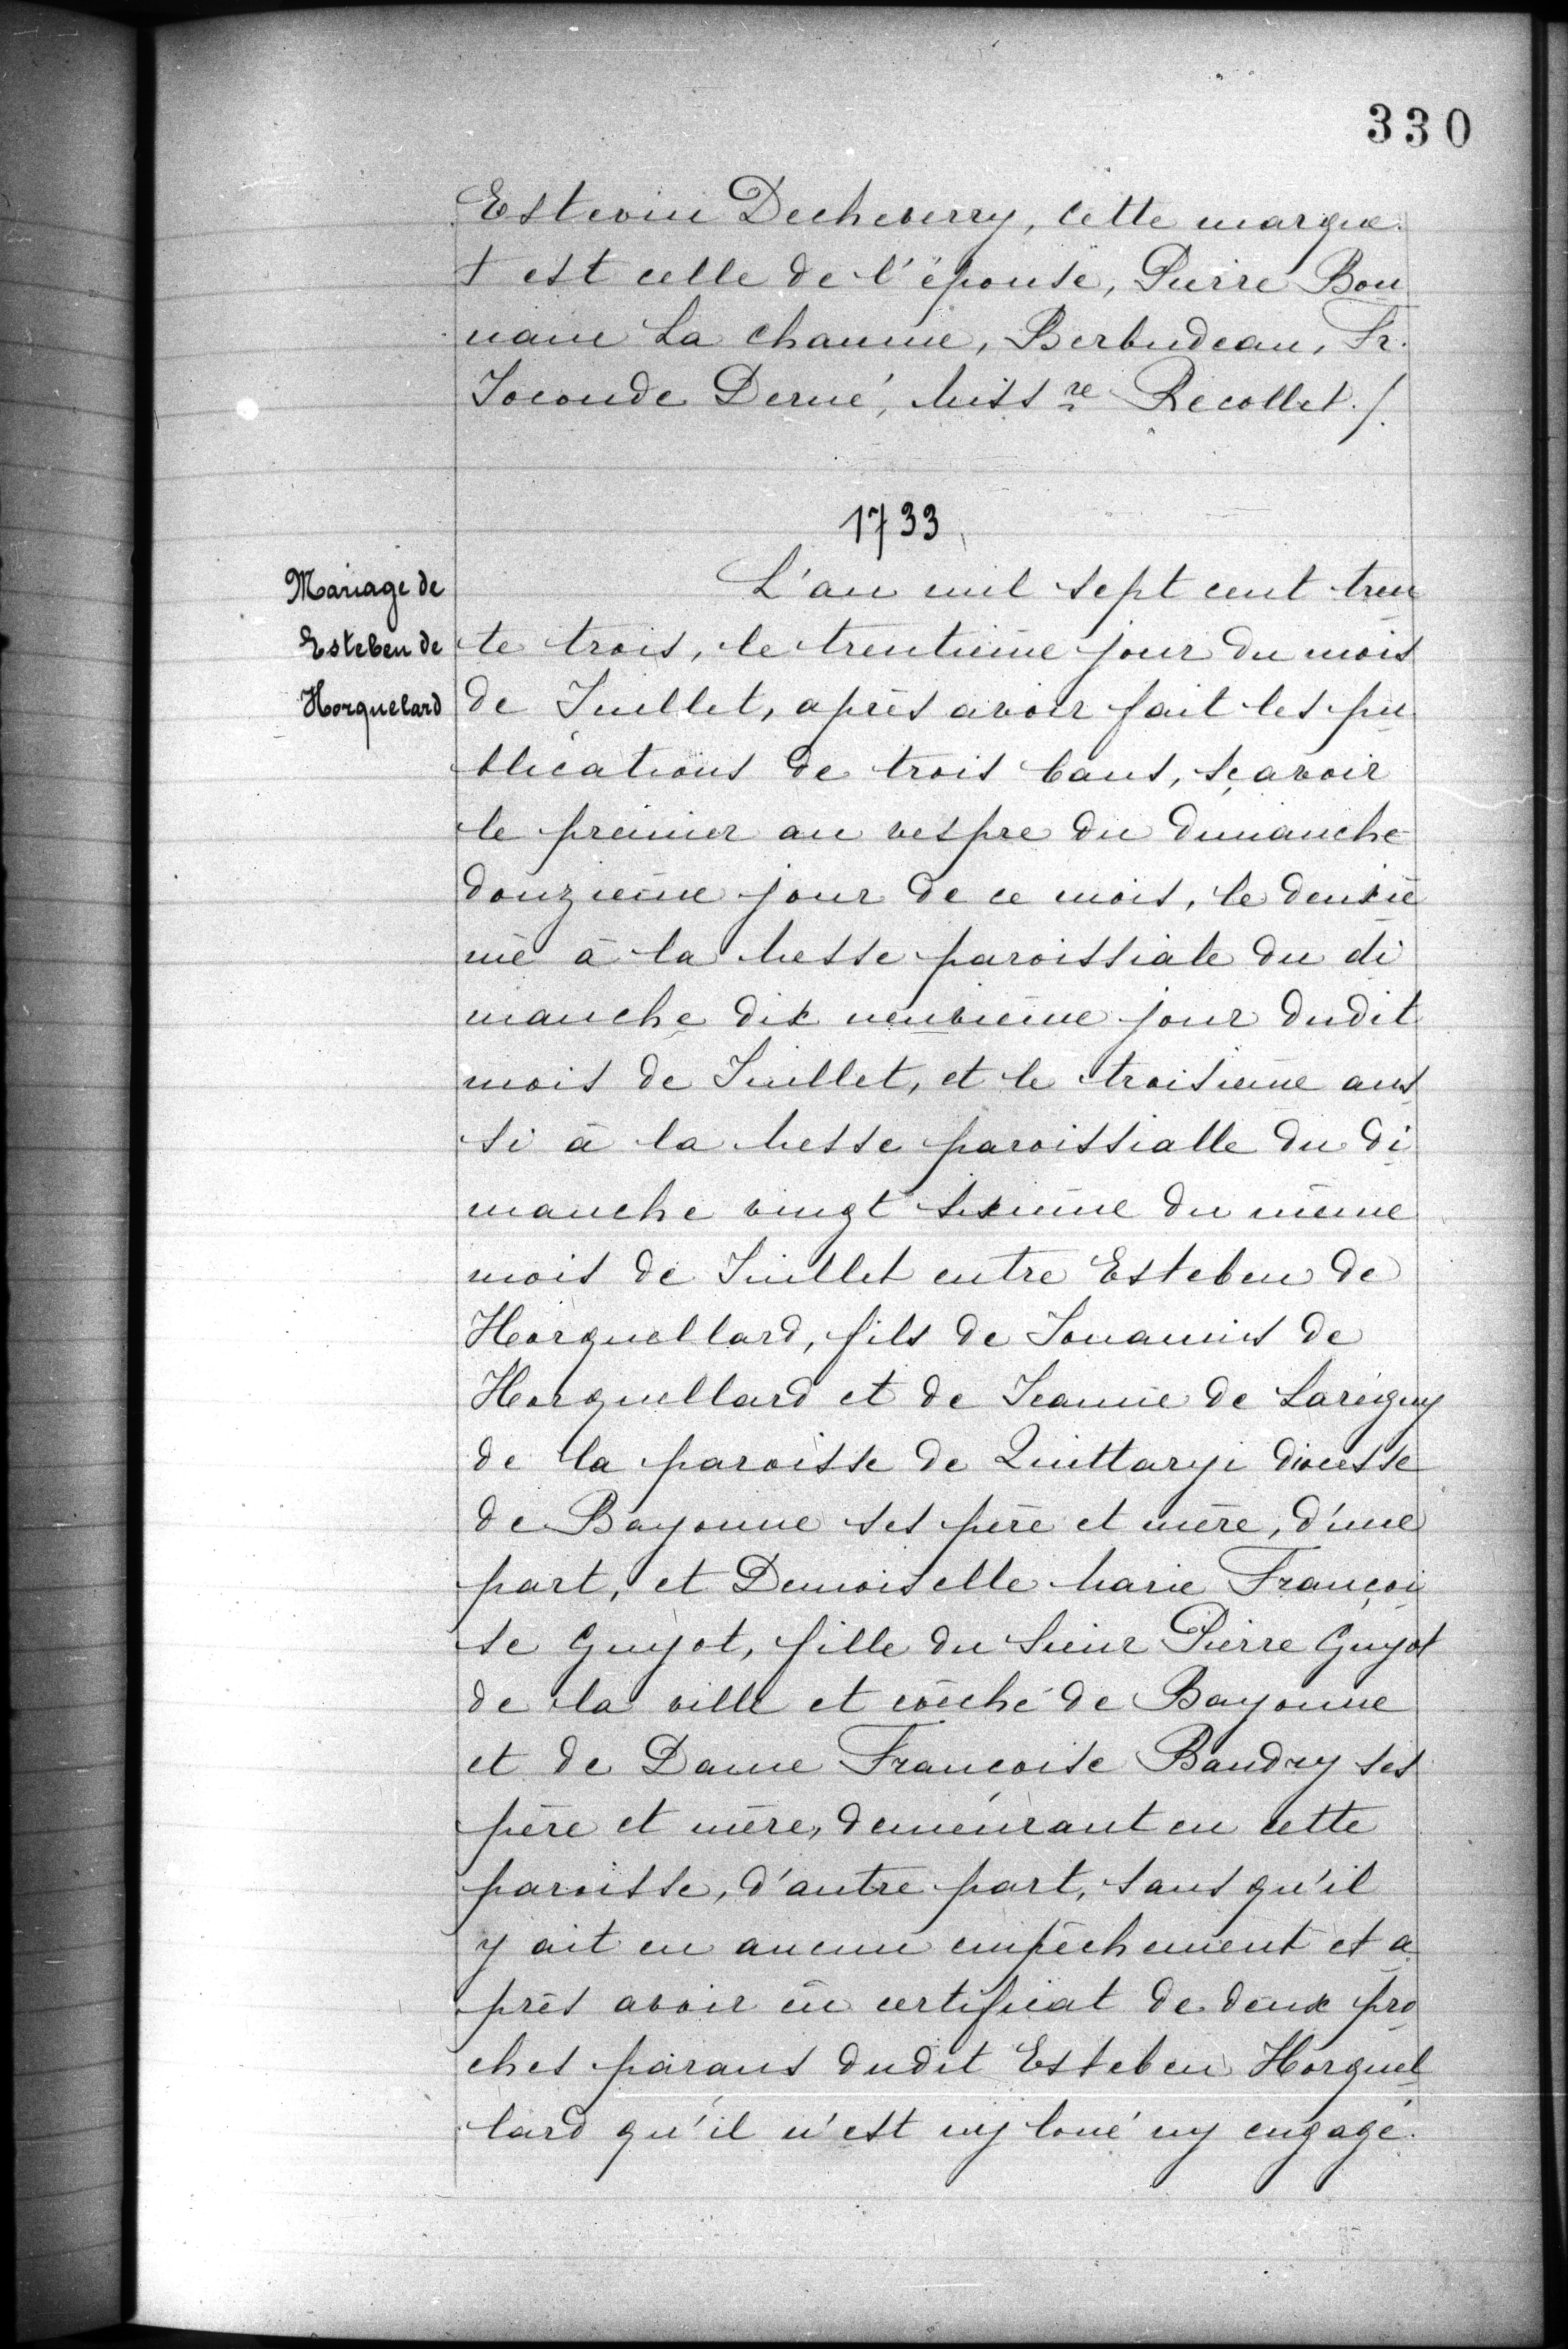 330
Estevin Decheverry, cette marque
+ est celle de l'épouse, Pierre Bon
naire La chaume, Berbudeau, Fr.
Joconde Derné, Miss re Recollet./.
1733
Mariage de
Esteben de
Horquelard
L'an mil sept cent tren
te trois, le trentième jour du mois
de Juillet, après avoir fait les pu
blications de trois bans, sçavoir
le premier au vespre du dimanche
douzième jour de ce mois, le deuxiè
me à la Messe paroissiale du di
manche dix neuvième jour dudit
mois de Juillet, et le troisième aus
si à la Messe paroissialle du di
manche vingt sixième du même
mois de Juillet entre Esteben de
Horquellard, fils de Jouannis de
Horquellard et de Jeanne de Lareguy
de la paroisse de Quittaryi diocesse
de Bayonne ses père et mère, d'une
part, et Demoiselle Marie Françoi
se Guyot, fille du Sieur Pierre Guyot
de la ville et evêché de Bayonne
et de Dame Françoise Baudry ses
père et mère, demeurant en cette
paroisse, d'autre part, sans qu'il
y ait eu aucun empêchement et a
près avoir eu certificat de deux pro
ches parans dudit Esteben Horquel
lard qu'il n'est ny loué ny engagé